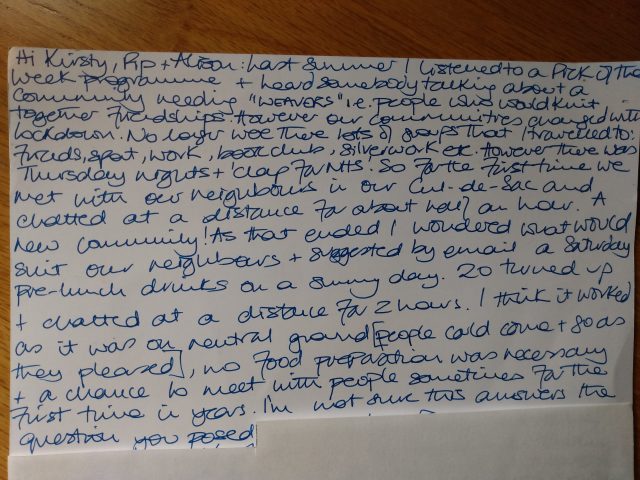 Hi Kirsty, Pip + Alison: Last summer I listened to a Pick of the
week programme + heard somebody talking about a
community needing "WEAVERS" i.e. people who would knit
together friendships. However our communities changed with
lockdown. No longer were there lots of groups that I travelled to:
friends, sport, work, book club, silverwork etc. However there was
Thursday nights + 'clap for NHS. So for the first time we
met with our neighbours in our Cul-de-Sac and
chatted at a distance for about half an hour. A
new community! As that ended I wondered what would
suit our neighbours + suggested by email a Saturday
pre-lunch drinks on a sunny day. 20 turned up
+ chatted at a distance for 2 hours. I think it worked
as it was on neutral ground [people could come + go as
they pleased], no food preparation was necessary
+ a chance to meet with people sometimes for the
first time in years. I'm not sure this answers the
question you posed